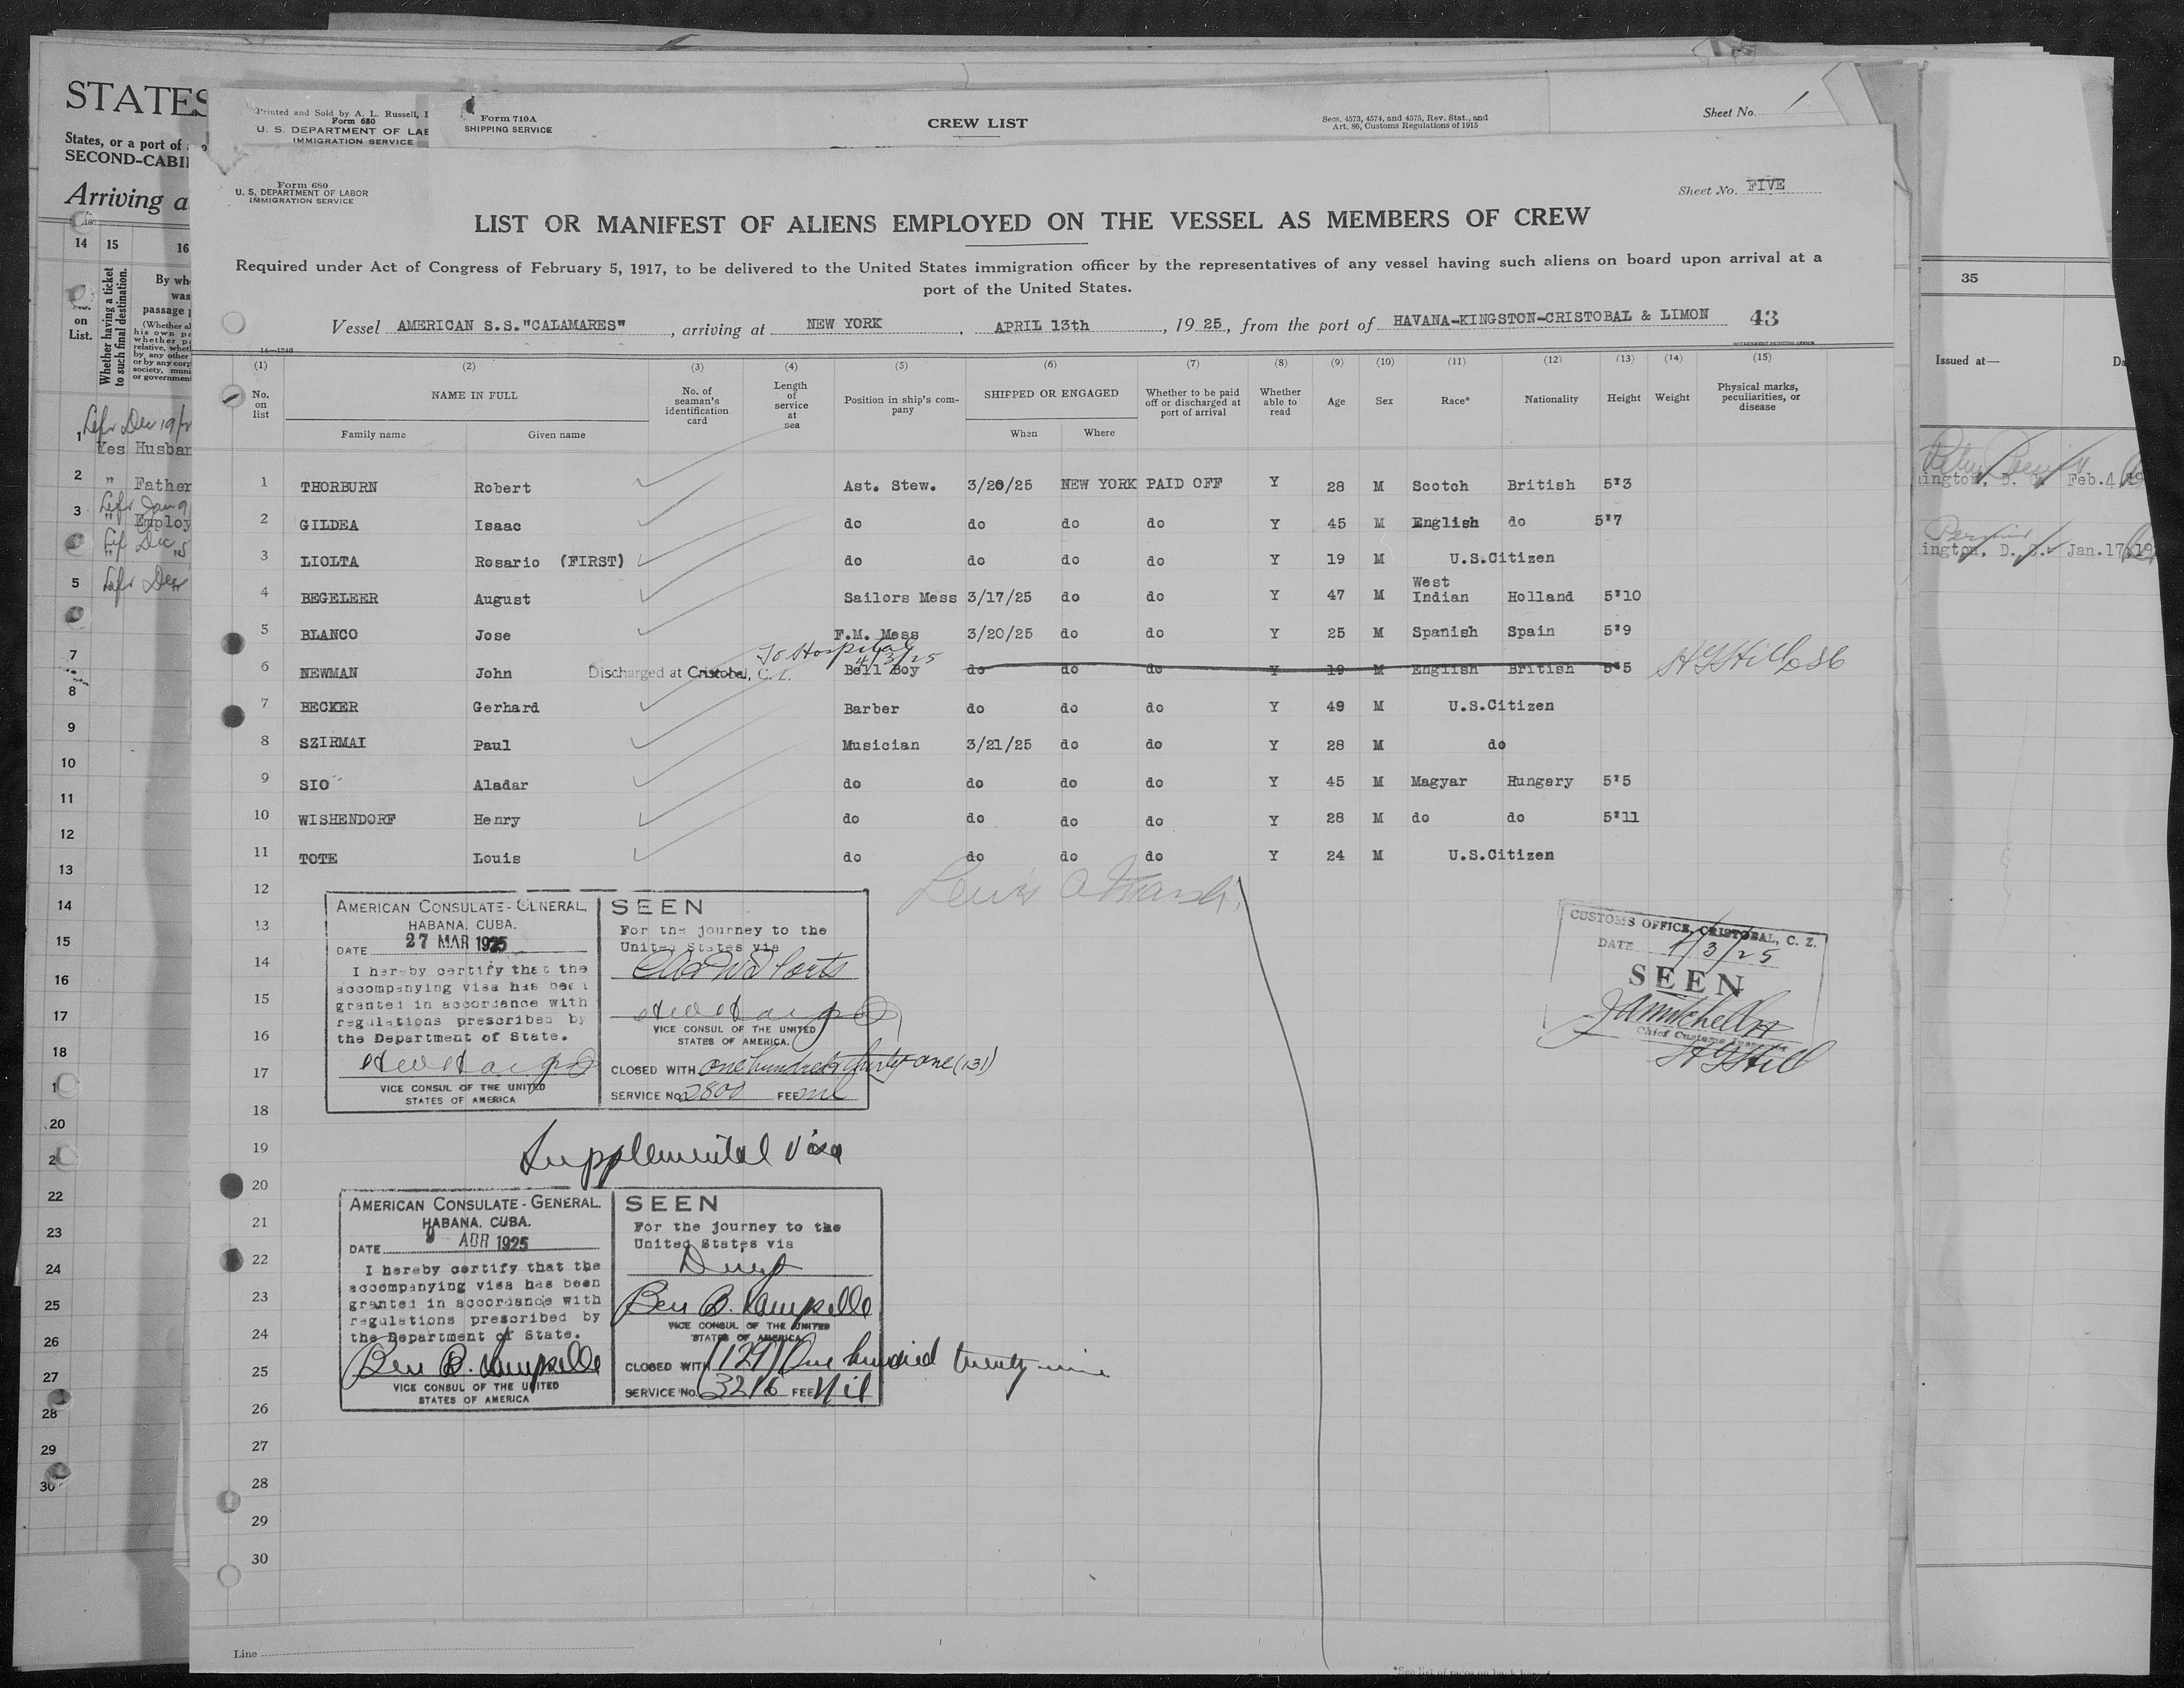 STATES
States, or a port of
SECOND-CABI
Arriving a
14 15 16
No. on List.
Whether having a ticket to such final destination.
By wh
was
passage
(Whether al
his own pa
whether pa
relative, whet
by any other
or by any corp
society, muni
or government
1 Yes Husban
2 " Father
3 " Employ
5
7
8
9
10
11
12
13
14
15
16
17
18
20
22
23
24
25
26
27
28
29
30
Printed and Sold by A. L. Russell, I
Form 680
U. S. DEPARTMENT OF LAB
IMMIGRATION SERVICE
Form 710A
SHIPPING SERVICE
CREW LIST
Secs. 4573, 4574, and 4575, Rev. Stat., and
Art. 86, Customs Regulations of 1915
Sheet No. 1
Form 680
U. S. DEPARTMENT OF LABOR
IMMIGRATION SERVICE
Sheet No. FIVE
LIST OR MANIFEST OF ALIENS EMPLOYED ON THE VESSEL AS MEMBERS OF CREW
Required under Act of Congress of February 5, 1917, to be delivered to the United States immigration officer by the representatives of any vessel having such aliens on board upon arrival at a
port of the United States.
Vessel AMERICAN S.S."CALAMARES", arriving at NEW YORK, APRIL 13th, 1925, from the port of HAVANA-KINGSTON-CRISTOBAL & LIMON 43
14—1240
GOVERNMENT PRINTING OFFICE
(1) (2) (3) (4) (5) (6) (7) (8) (9) (10) (11) (12) (13) (14) (15)
No. on list
NAME IN FULL
Family name
Given name
No. of seaman's identification card
Length of service at sea
Position in ship's company
SHIPPED OR ENGAGED
When
Where
Whether to be paid off or discharged at port of arrival
Whether able to read
Age
Sex
Race*
Nationality
Height
Weight
Physical marks, peculiarities, or disease
1 THORBURN Robert Ast. Stew. 3/20/25 NEW YORK PAID OFF Y 28 M Scotch British 5'3
2 GILDEA Isaac do do do do Y 45 M English do 5'7
3 LIOLTA Rosario (FIRST) do do do do Y 19 M U.S.Citizen
4 BEGELEER August Sailors Mess 3/17/25 do do Y 47 M West Indian Holland 5'10
5 BLANCO Jose F.M. Mess 3/20/25 do do Y 25 M Spanish Spain 5'9
To Hospital
4/3/25
6 NEWMAN John Discharged at Cristobal, C. Z. Bell Boy do do do Y 19 M English British 5'5
7 BECKER Gerhard Barber do do do Y 49 M U.S.Citizen
8 SZIRMAI Paul Musician 3/21/25 do do Y 28 M do
9 SIO Aladar do do do do Y 45 M Magyar Hungery 5'5
10 WISHENDORF Henry do do do do Y 28 M do do 5'11
11 TOTE Louis do do do do Y 24 M U.S.Citizen
12
13
14
15
16
17
18
19
20
21
22
23
24
25
26
27
28
29
30
AMERICAN CONSULATE-GENERAL,
HABANA, CUBA.
DATE 27 MAR 1925
I hereby certify that the
accompanying visa has been
granted in accordance with
regulations prescribed by
the Department of State.
VICE CONSUL OF THE UNITED
STATES OF AMERICA
SEEN
For the journey to the
United States via
VICE CONSUL OF THE UNITED
STATES OF AMERICA.
CLOSED WITH one hundred thirty-one (131)
SERVICE No. 2800 FEE
CUSTOMS OFFICE, CRISTOBAL, C. Z.
DATE 4/3/25
SEEN
Chief Customs Inspector
Supplemental Visa
AMERICAN CONSULATE-GENERAL,
HABANA, CUBA.
DATE ABR 1925
I hereby certify that the
accompanying visa has been
granted in accordance with
regulations prescribed by
the Department of State.
VICE CONSUL OF THE UNITED
STATES OF AMERICA
SEEN
For the journey to the
United States via
VICE CONSUL OF THE UNITED
STATES OF AMERICA
CLOSED WITH (129) One hundred twenty nine
SERVICE No. 3216 FEE Nil
Line
*See list of races on back hereof
35
Issued at—
ington, D. C. Feb.4
ington, D. C. Jan.17